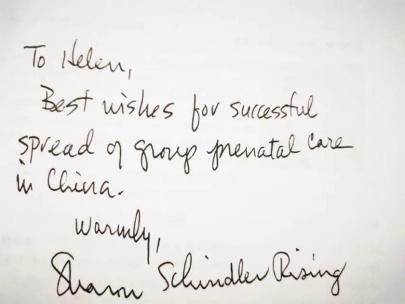 To Helen,
Best wishes for successful
spread of group prenatal care
in China.
Warmly,
Sharon Schindler Rising